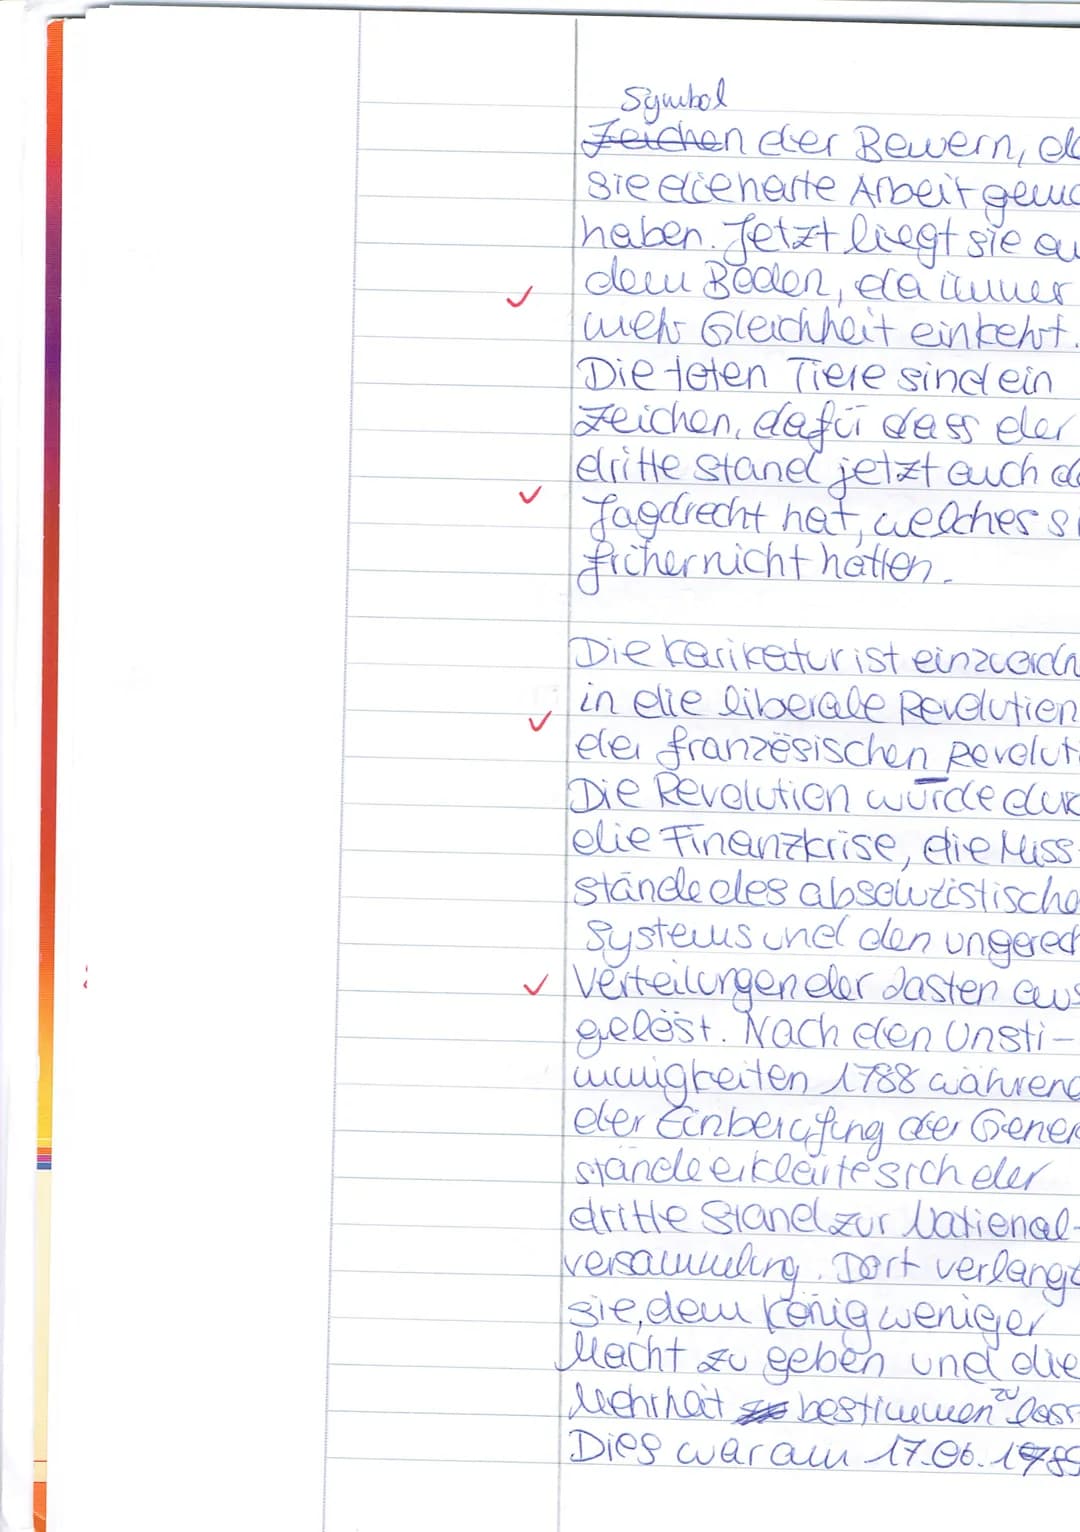 Symbol
Zeichen der Bewern,
sie die harte Arbeit
haben. Jetzt liegt sie
dem Boden, da immer
mehr Gleichheit einkehrt.
Die toten Tiere sind ein
Zeichen, dafür dass der
dritte Stand jetzt auch
Jagdrecht hat, welches
früher nicht hatten.
Die Karikatur ist einzuordn
in die liberale Revolution
der französischen Revoluti
Die Revolution wurde dur
die Finanzkrise, die Miss-
stände des absolutistische
Systems und den ungerech
Verteilungen der Lasten aus
gelöst. Nach den Unsti-
mmigkeiten 1788 während
der Einberufung der Gener
stände erklärte sich der
dritte Stand zur National-
versammlung. Dort verlangt
sie, dem König weniger
Macht zu geben und die
Mehrheit bestimmen zu lass
Dies war am 17.06.1789